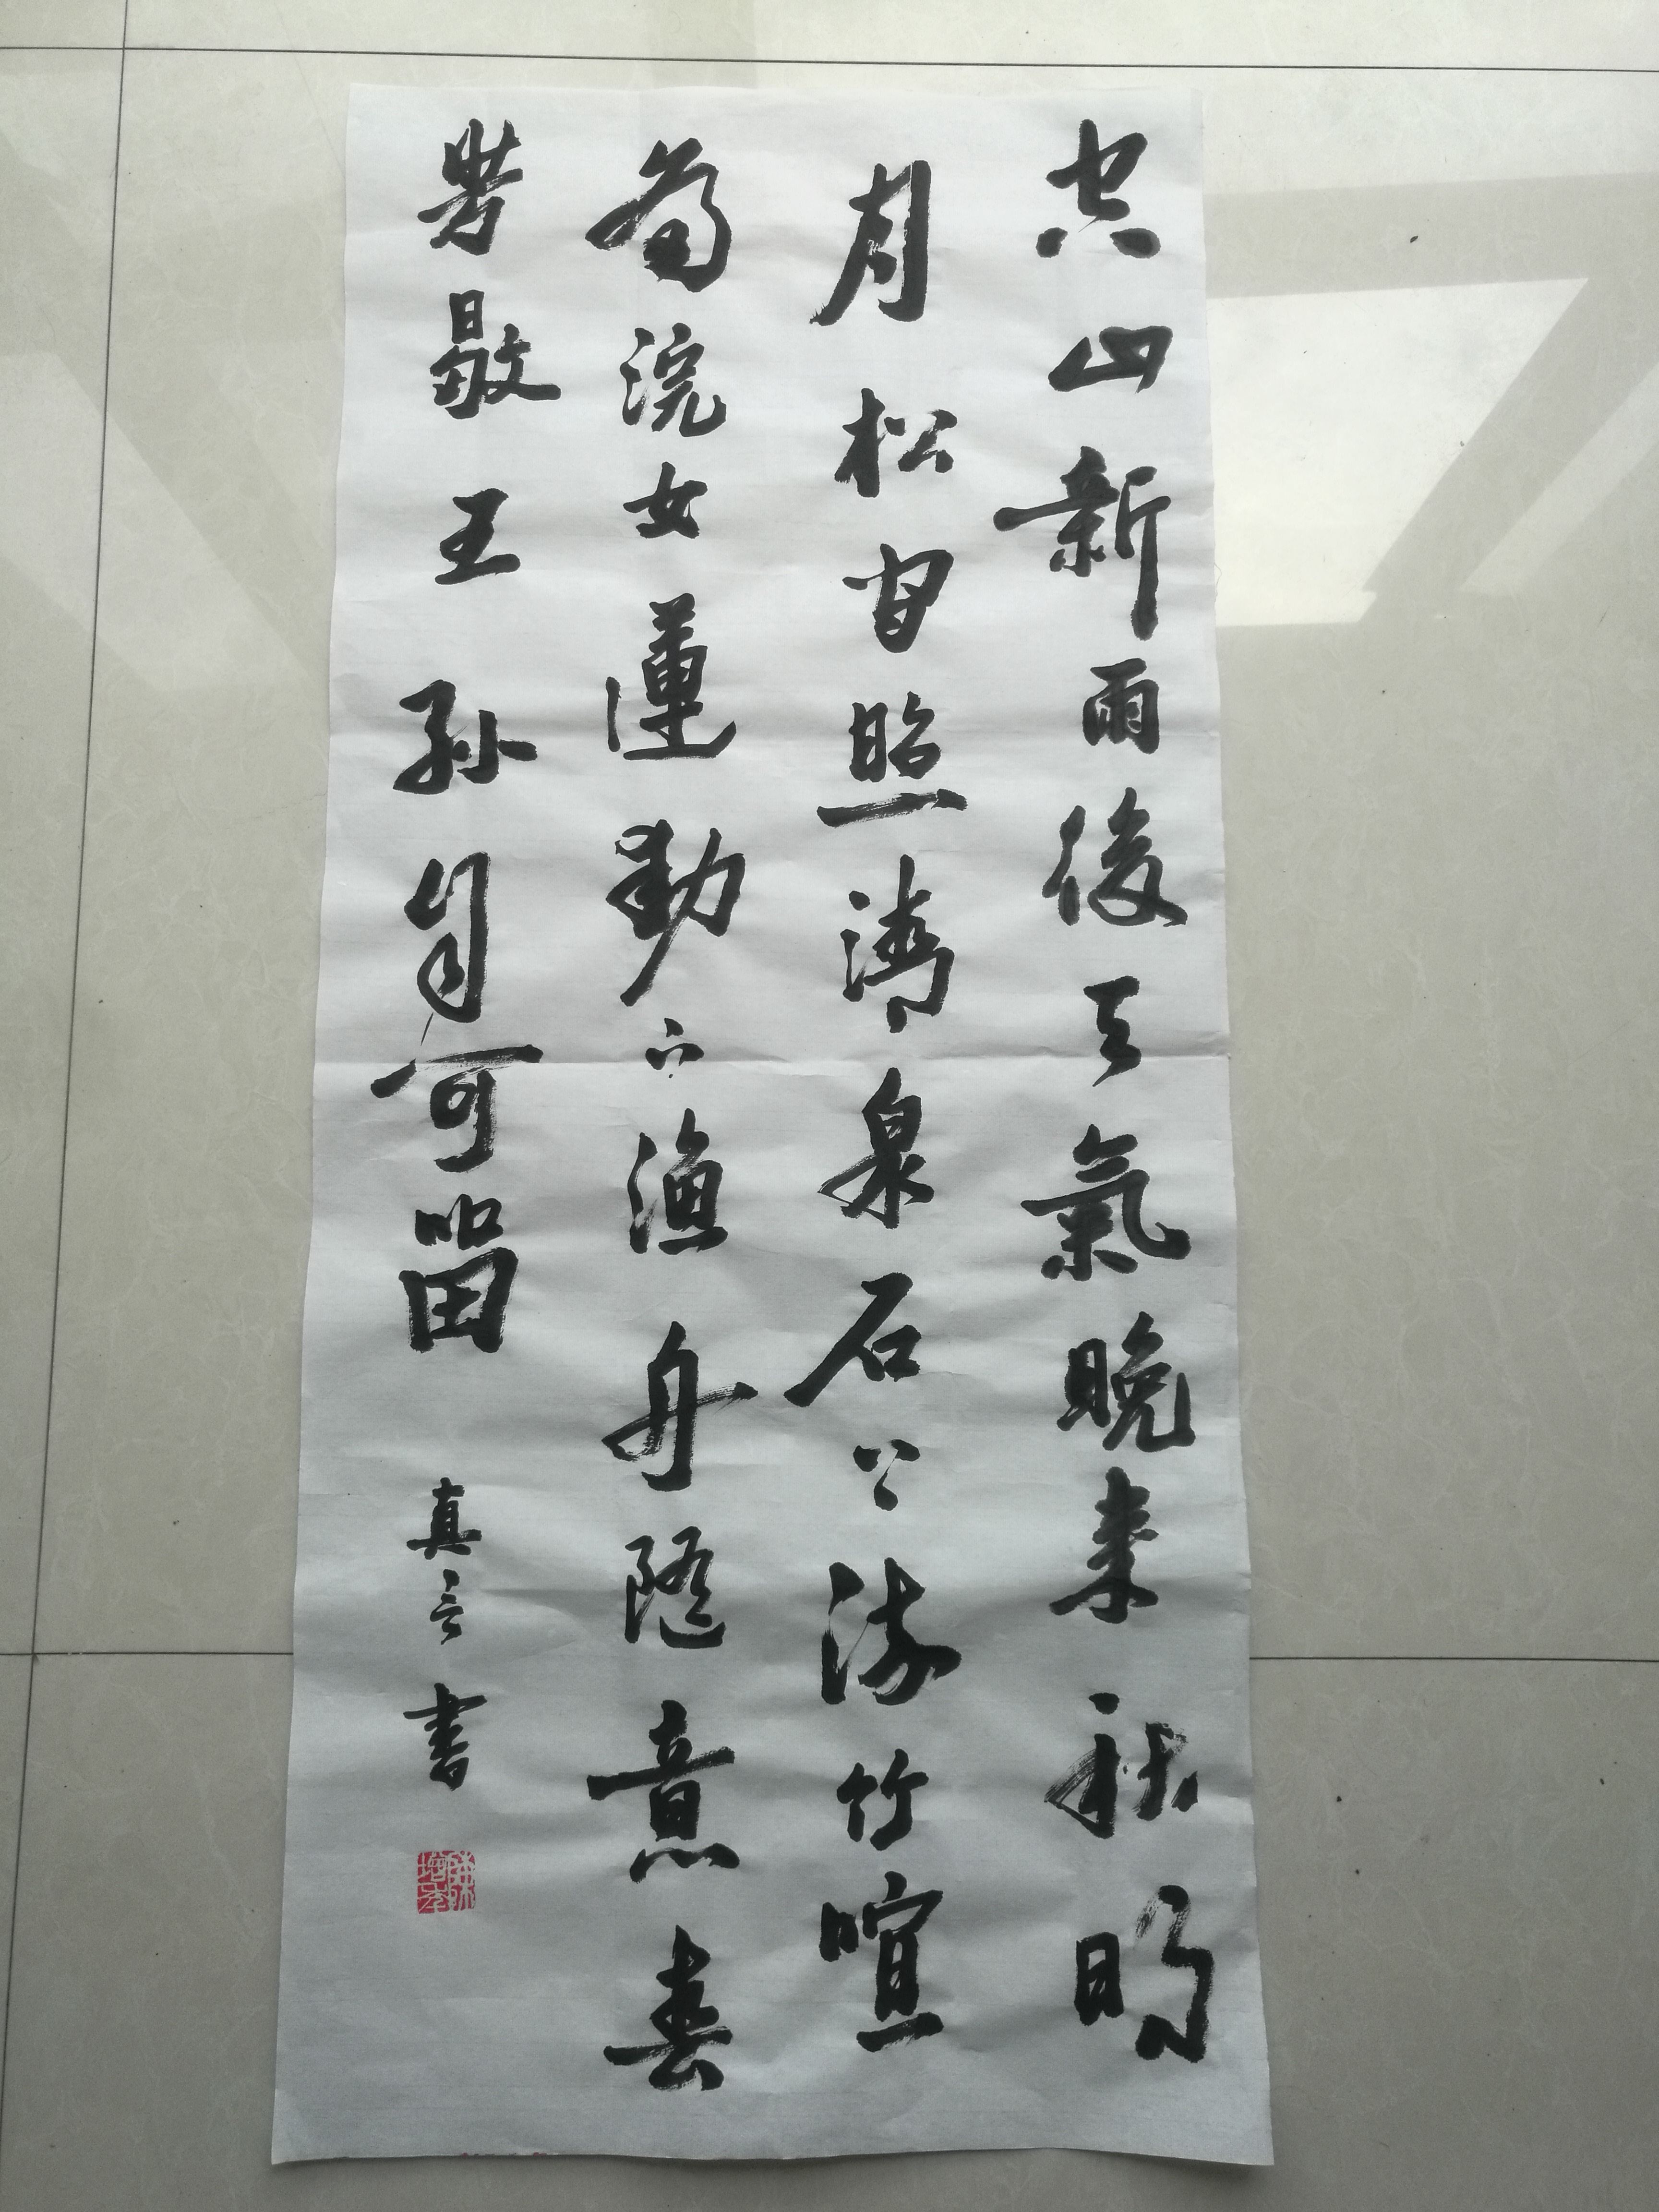 空山新雨後天氣晚来秋明
月松间照清泉石上流竹喧
歸浣女蓮動下漁舟随意春
芳歇王孫自可留
真言書